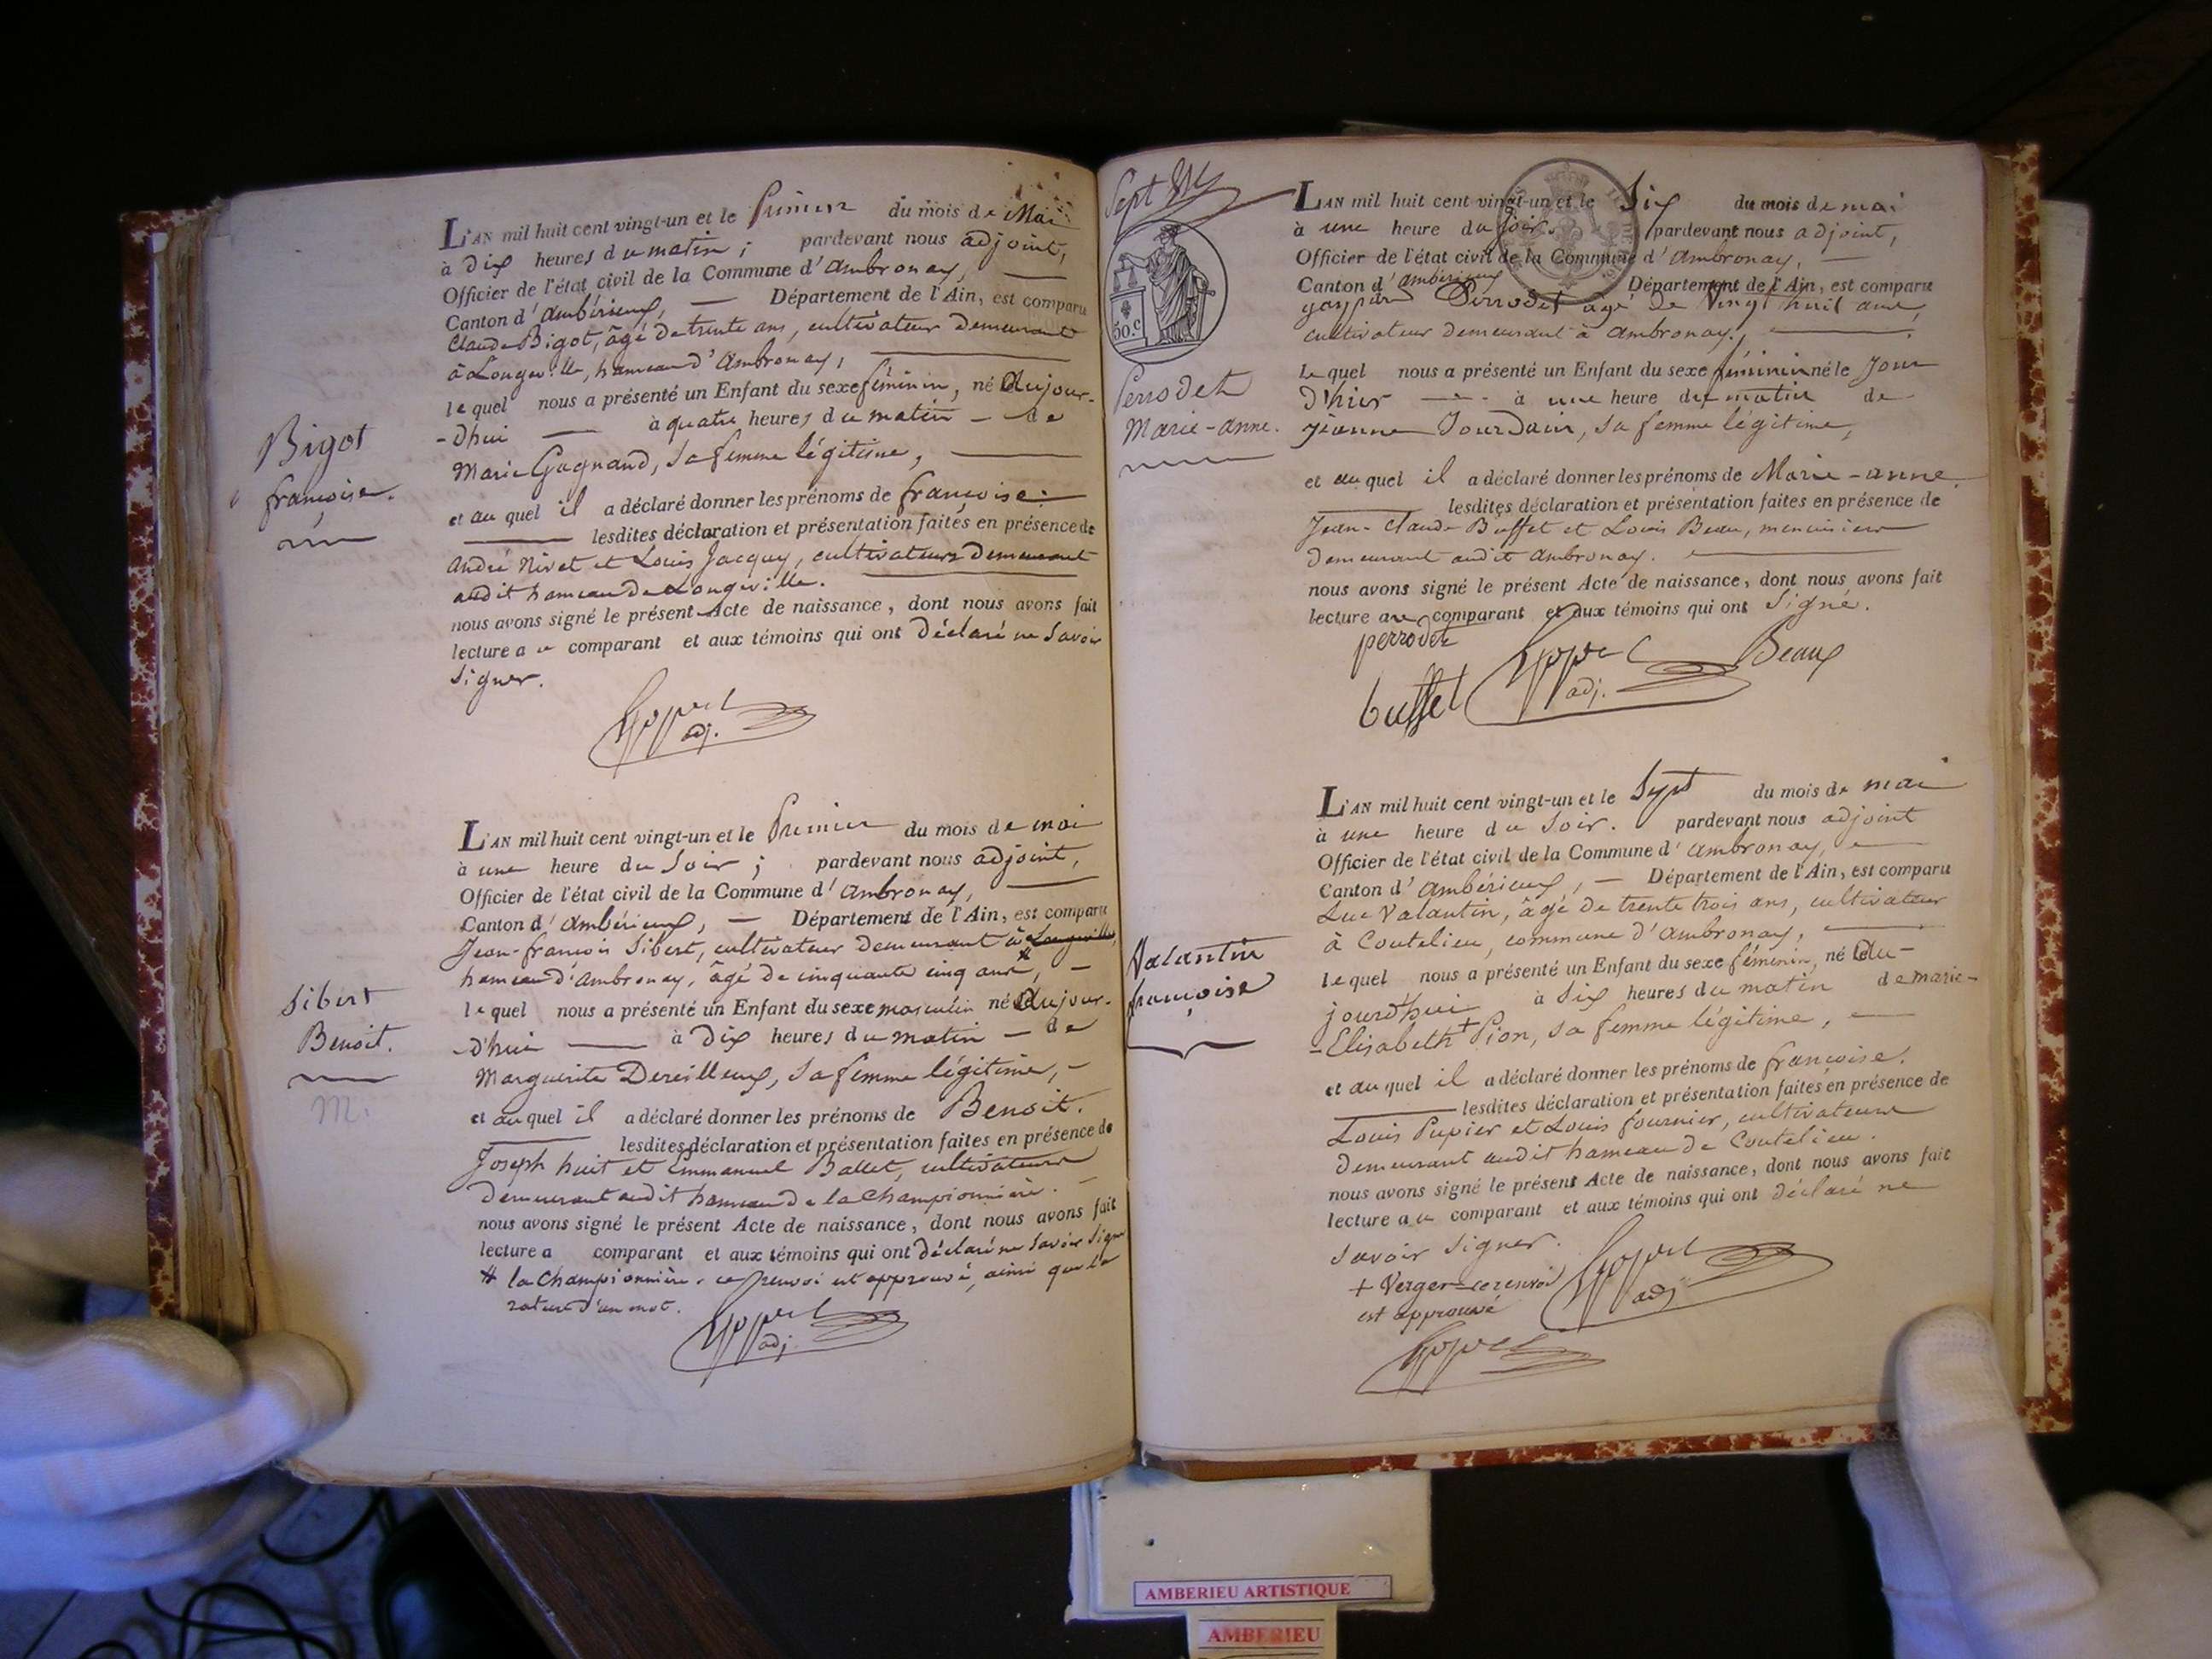 L'AN mil huit cent vingt-un et le Premier du mois de Mai
à dix heures du matin ; pardevant nous adjoint,
Officier de l'état civil de la Commune d'Ambronay,
Canton d'Ambérieux, Département de l'Ain, est comparu
Claude Bigot, âgé de trente ans, cultivateur demeurant
à Longeville, hameau d'Ambronay,
lequel nous a présenté un Enfant du sexe féminin, né Aujour-
-d'hui à quatre heures du matin - de
Marie Gagnand, sa femme légitime,
et au quel il a déclaré donner les prénoms de françoise.
lesdites déclaration et présentation faites en présence de
André Nivet et Louis Jacquy, cultivateurs demeurant
audit hameau de Longeville.
nous avons signé le présent Acte de naissance, dont nous avons fait
lecture au comparant et aux témoins qui ont déclaré ne savoir
signer.
adj.
Bigot
françoise.
L'AN mil huit cent vingt-un et le Premier du mois de mai
à une heure du soir ; pardevant nous adjoint,
Officier de l'état civil de la Commune d'Ambronay,
Canton d'Ambérieux, — Département de l'Ain, est comparu
Jean-françois Sibert, cultivateur demeurant à Longeville,
hameau d'Ambronay, âgé de cinquante cinq ans, —
lequel nous a présenté un Enfant du sexe masculin né Aujour-
-d'hui à dix heures du matin - de
Marguerite Dereilleux, sa femme légitime, -
et au quel il a déclaré donner les prénoms de Benoit.
lesdites déclaration et présentation faites en présence de
Joseph huit et Emmanuel Ballet, cultivateurs
demeurant audit hameau de la Championnière.
nous avons signé le présent Acte de naissance, dont nous avons fait
lecture a comparant et aux témoins qui ont déclaré ne savoir signer
# la Championnière. ce renvoi est approuvé, ainsi que la
rature d'un mot.
adj.
Sibert
Benoit.
M.
Sept
50.c
Perrodet
Marie-anne.
L'AN mil huit cent vingt-un et le Six du mois de mai
à une heure du soir. pardevant nous adjoint,
Officier de l'état civil de la Commune d'Ambronay,
Canton d'ambérieux Département de l'Ain, est comparu
gaspar Perrodet âgé de Vingt huit ans,
cultivateur demeurant à Ambronay.
lequel nous a présenté un Enfant du sexe féminin né le Jour
d'hier à une heure du matin de
Jeanne Jourdain, sa femme légitime,
et au quel il a déclaré donner les prénoms de Marie-anne.
lesdites déclaration et présentation faites en présence de
Jean-Claude Buffet et Louis Beau, menuisiers
demeurant audit ambronay.
nous avons signé le présent Acte de naissance, dont nous avons fait
lecture au comparant et aux témoins qui ont signé.
perrodet
Beaux
buffet
adj.
L'AN mil huit cent vingt-un et le Sept du mois de mai
à une heure du soir. pardevant nous adjoint
Officier de l'état civil de la Commune d'Ambronay,
Canton d'Ambérieux, — Département de l'Ain, est comparu
Luc Valantin, âgé de trente trois ans, cultivateur
à Coutelieu, commune d'Ambronay,
lequel nous a présenté un Enfant du sexe féminin, né Au-
jourd'hui à six heures du matin de marie-
-Elisabeth + Pion, sa femme légitime,
et au quel il a déclaré donner les prénoms de françoise.
lesdites déclaration et présentation faites en présence de
Louis Pupier et Louis fournier, cultivateurs
demeurant audit hameau de Coutelieu.
nous avons signé le présent Acte de naissance, dont nous avons fait
lecture au comparant et aux témoins qui ont déclaré ne
savoir signer.
+ Verger = ce renvoi
est approuvé
adj
Valantin
françoise
AMBERIEU ARTISTIQUE
AMBERIEU